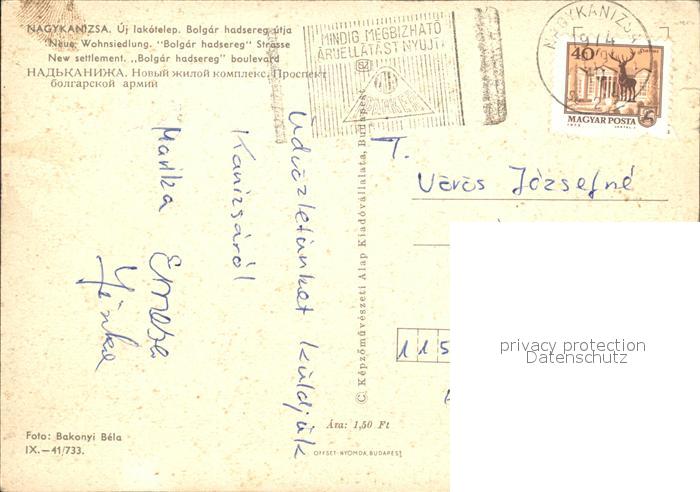 NAGYKANIZSA. Új lakótelep. Bolgár hadsereg útja
"Neue Wohnsiedlung. "Bolgár hadsereg" Strasse
New settlement. „Bolgár hadsereg" boulevard
НАДЬКАНИЖА. Новый жилой комплекс. Проспект
болгарской армий
MINDIG MEGBIZHATÓ
ÁRUELLÁTÁST NYÚJT
NAGYKANIZSA
40
MAGYAR POSTA
T. Vörös Józsefné
Üdvözletünket küldjük
Kanizsáról
Marika Emese
115
© Képzőművészeti Alap Kiadóvállalata, Budapest
privacy protection
Datenschutz
Ára: 1,50 Ft
Foto: Bakonyi Béla
IX.—41/733.
OFFSET-NYOMDA, BUDAPEST